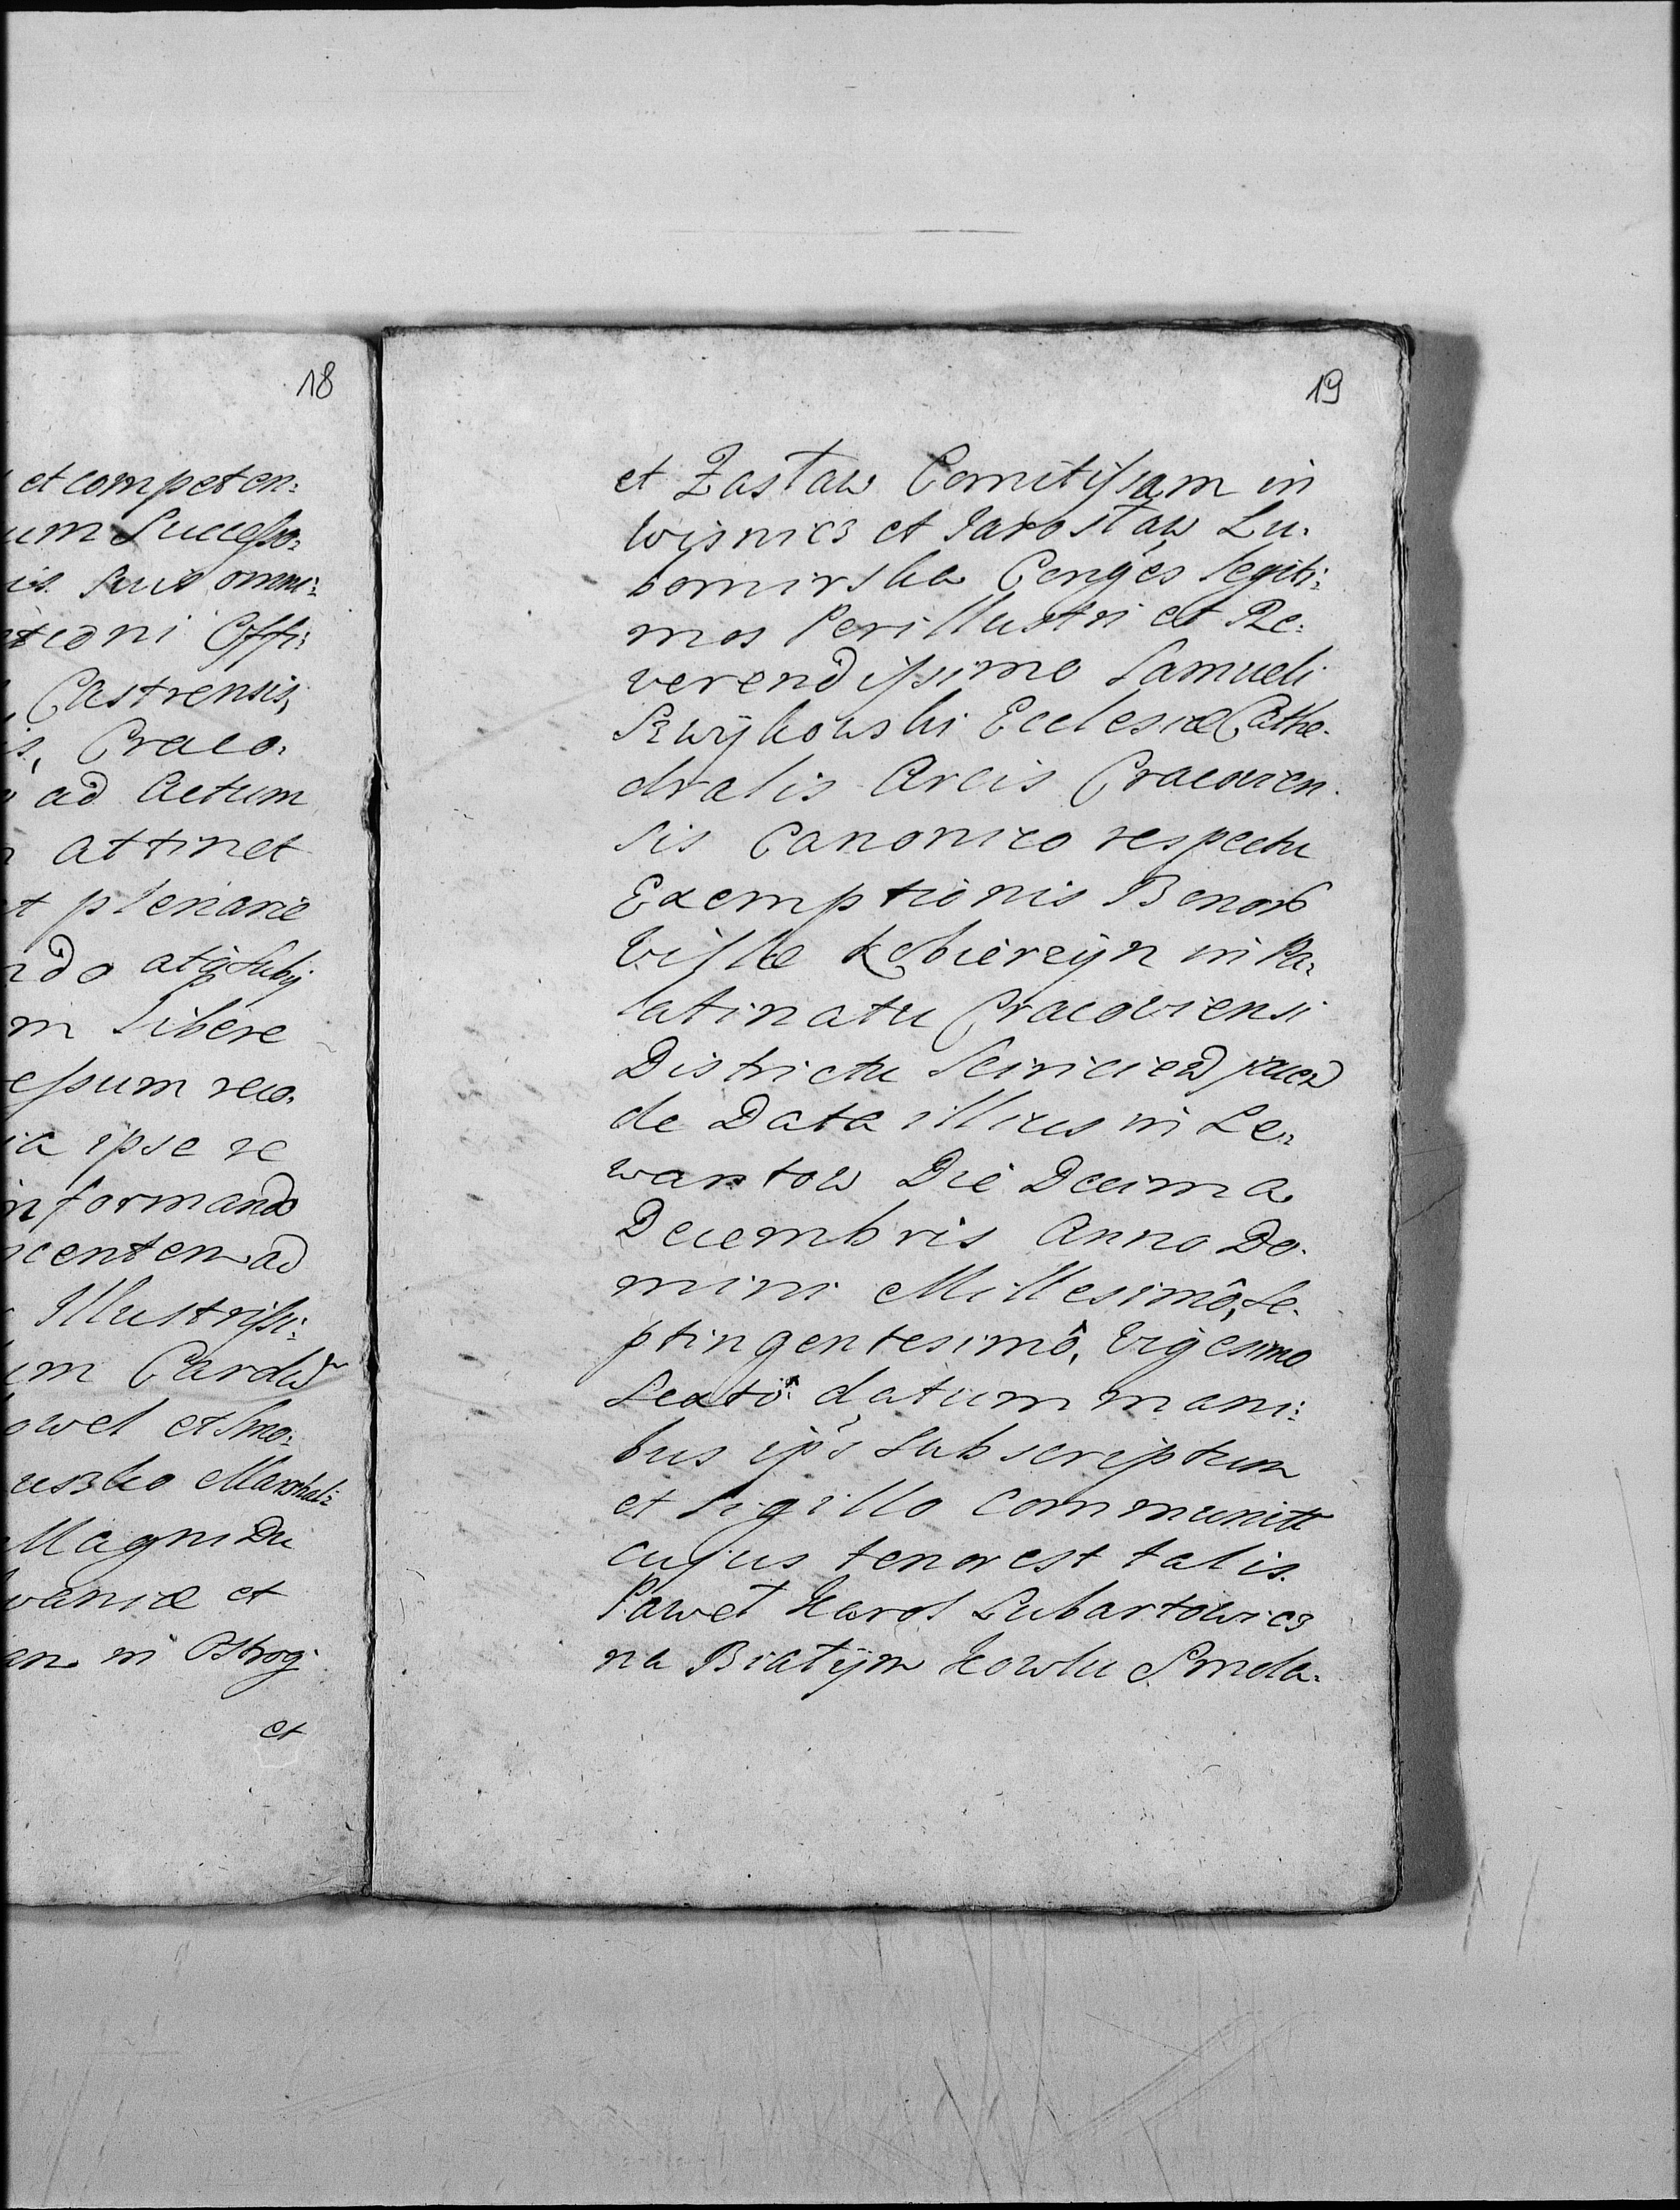 18
et competen:
um Successo:
is suis omni:
tioni Offi:
Castrensis,
Craco:
ad Actum
attinet
t plenarie
ndo atq Subij
m libere
essum reco.
ia ipse re
informando
centem ad
Illustrissi:
um
owel et Smo:
uszko Marschal:
Magni Du
vaniæ et
an in Ostrog
et
19
et Zasław Comitissam in
Wiśnicz et Jarosław Lu:
bomirska Conges legiti:
mos Perillustri et Re:
verendissimo Samueli
Szwykowski Ecclesiæ Cathe.
dralis Arcis Cracovien.
sis Canonico respectu
Exemptionis Bonor
Villæ Kobierzyn in Pa:
latinatu Cracoviensi
Districtu
de Data illius in Le:
wartow Die Decima
Decembris Anno Do.
mini Millesimô, Se.
ptingentesimô, Vigesimo
Sextô datum mani:
bus ips Subscriptum
et Sigillo communit
cujus tenor est talis.
Paweł Karol Lubartowicz
na Białym Kowlu Smola.